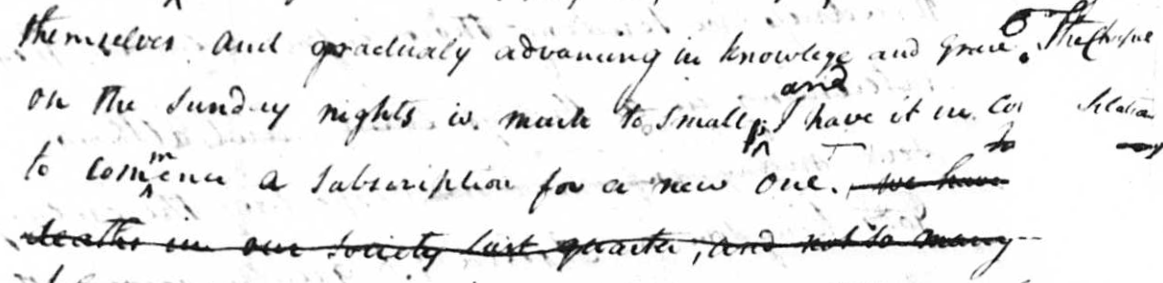 themselves and gradualy advancing in knowlege and Grace. The Chapel
on the Sunday nights is much to small; and I have it in Con
to commence a subscription for a new One. we have
deaths in our society last quarter, and not so many